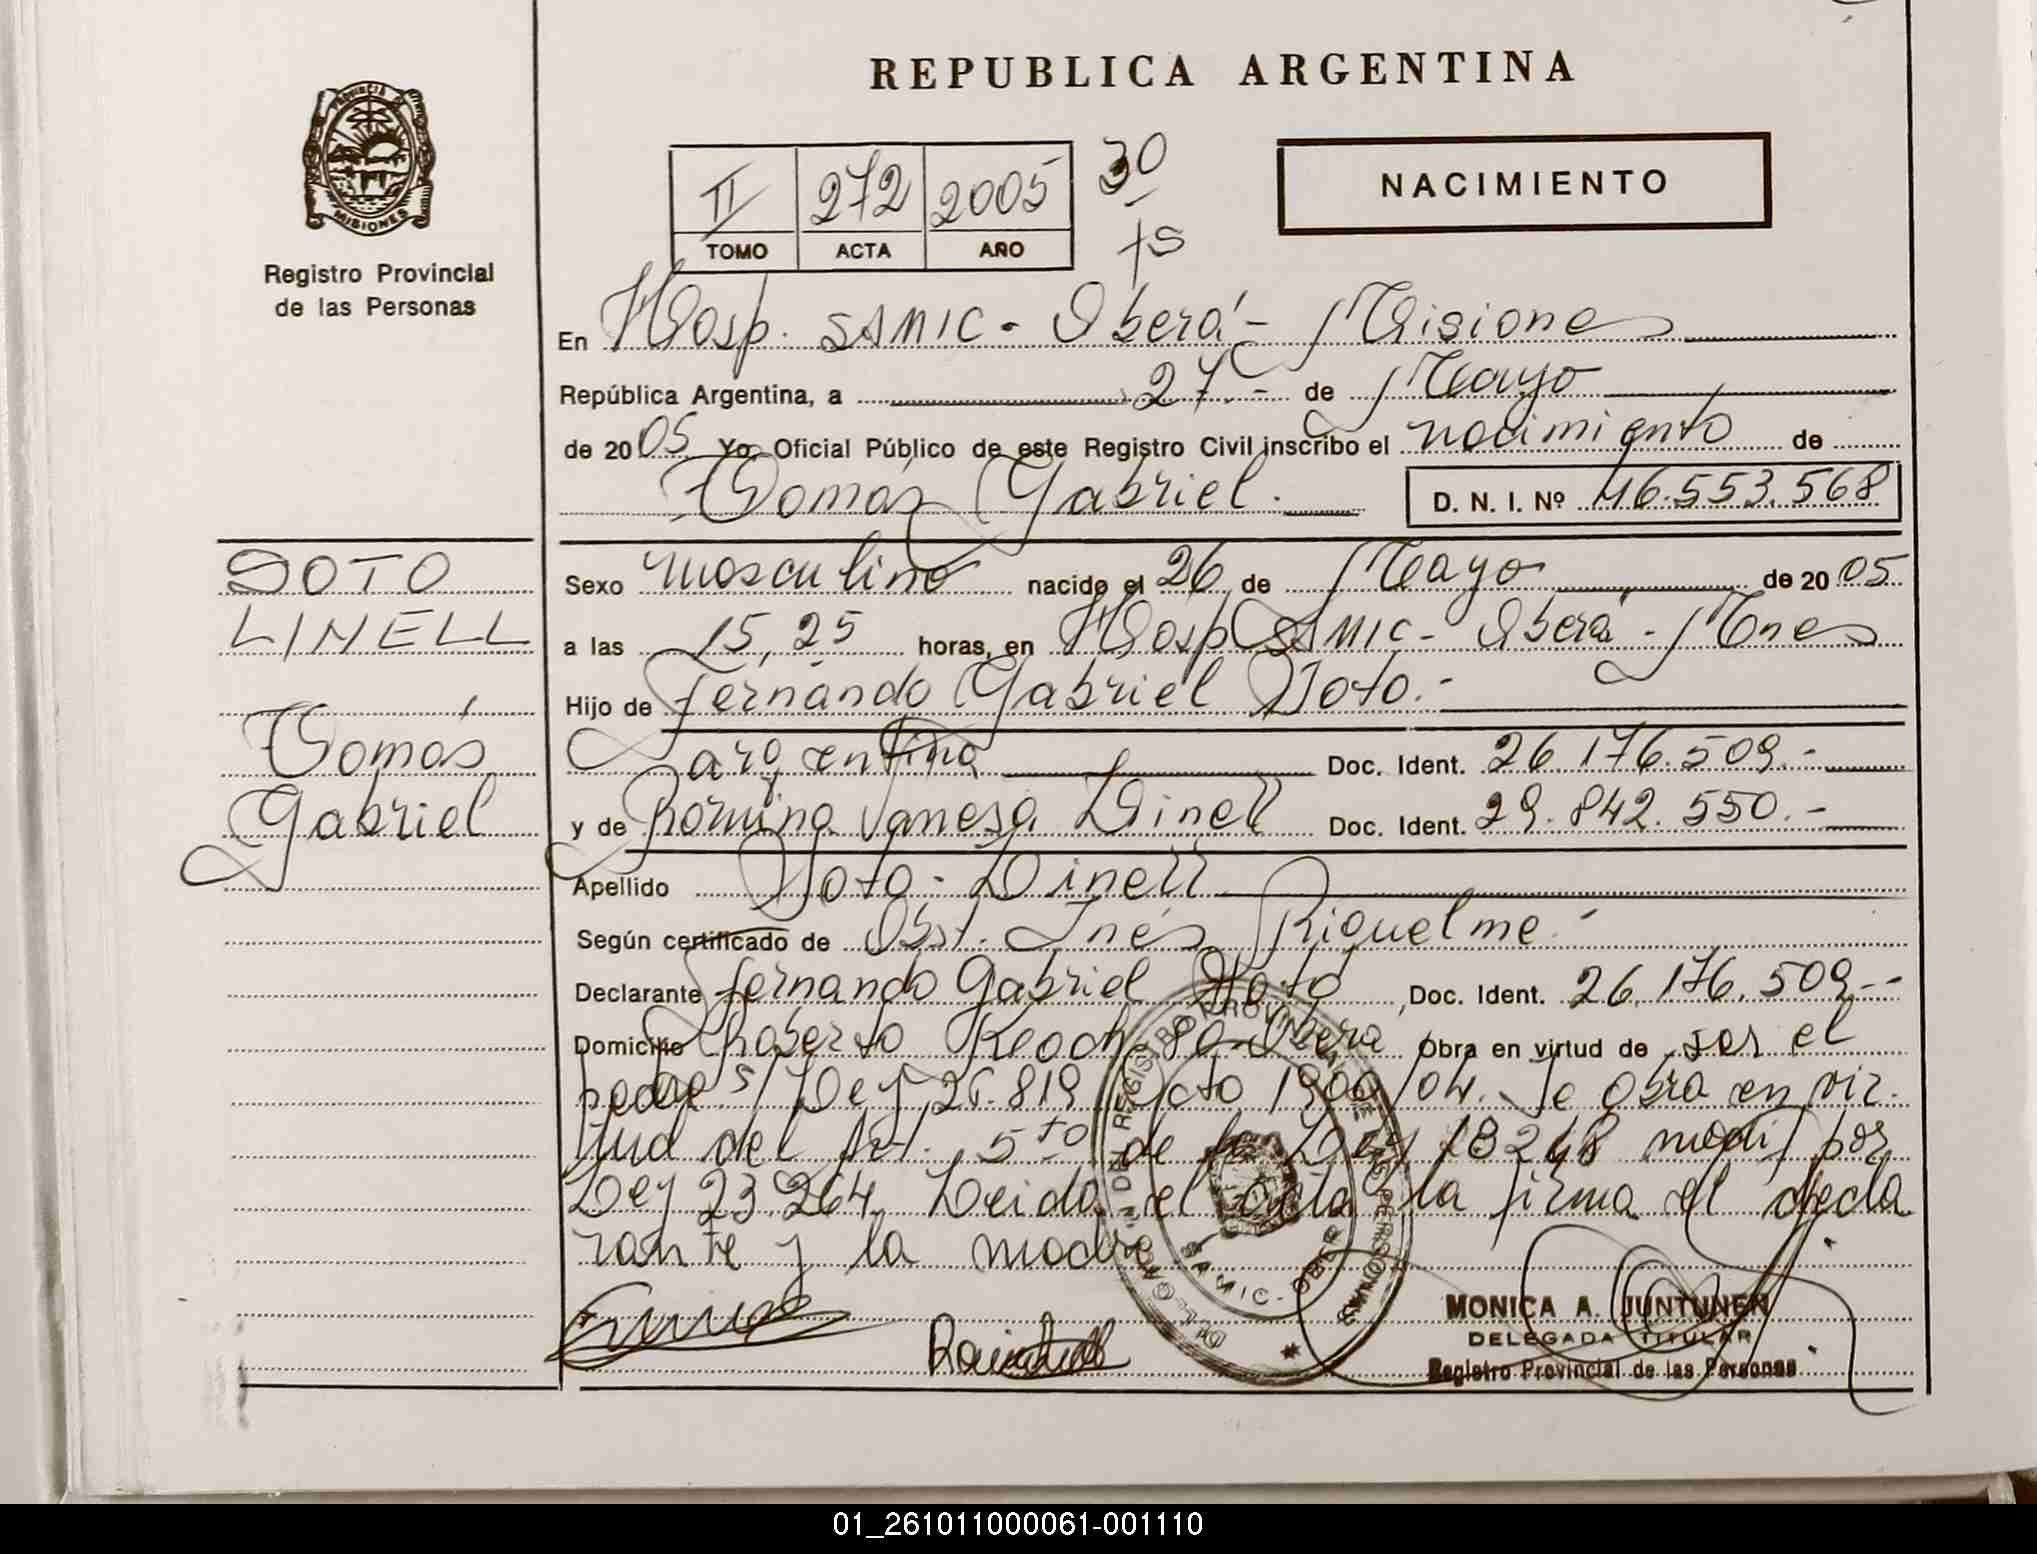 REPUBLICA ARGENTINA
PROVINCIA DE MISIONES
Registro Provincial
de las Personas
II 272 2005
TOMO ACTA AÑO
30
fs
NACIMIENTO
En Hosp. SAMIC - Oberá - Misiones
República Argentina, a 27.- de Mayo
de 2005 Yo, Oficial Público de este Registro Civil inscribo el nacimiento de
Tomás Gabriel. D. N. I. Nº 46.553.568
SOTO
LINELL
Tomás
Gabriel
Sexo masculino nacido el 26 de Mayo de 2005
a las 15,25 horas, en Hosp SAMIC - Oberá - Mnes
Hijo de Fernando Gabriel Soto.-
argentina Doc. Ident. 26.176.509.-
y de Romina Vanesa Linell Doc. Ident. 29.842.550.-
Apellido Soto - Linell
Según certificado de Obst. Inés Riquelme.-
Declarante Fernando Gabriel Soto, Doc. Ident. 26.176.509.--
Domicilio Roberto Koch 80-Oberá Obra en virtud de ser el
padre s/ Ley 26.819 Dcto 1900/04. Se obra en vir-
tud del Art. 5to de la Ley 18248 modif por
Ley 23.264. Leida el acta la firma el decla
rante y la madre
DELEGACION DEL REGISTRO PROVINCIAL DE LAS PERSONAS
SAMIC - OBERA
MONICA A. JUNTUNEN
DELEGADA TITULAR
Registro Provincial de las Personas
01_261011000061-001110